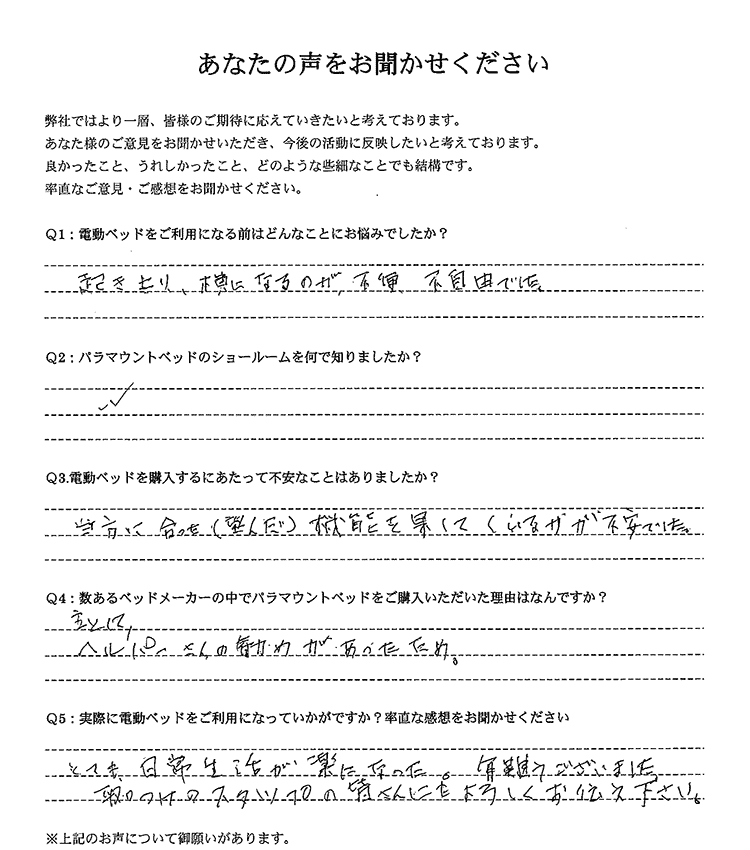 あなたの声をお聞かせください
弊社ではより一層、皆様のご期待に応えていきたいと考えております。
あなた様のご意見をお聞かせいただき、今後の活動に反映したいと考えております。
良かったこと、うれしかったこと、どのような些細なことでも結構です。
率直なご意見・ご感想をお聞かせください。
Q1：電動ベッドをご利用になる前はどんなことにお悩みでしたか？
起き上り、横になるのが、不便、不自由でした。
Q2：パラマウントベッドのショールームを何で知りましたか？
Q3.電動ベッドを購入するにあたって不安なことはありましたか？
当方に合った(望んだ)機能を果してくいるかが不安でした。
Q4：数あるベッドメーカーの中でパラマウントベッドをご購入いただいた理由はなんですか？
主として、
ヘルパーさんの勧めがあったため。
Q5：実際に電動ベッドをご利用になっていかがですか？率直な感想をお聞かせください
とても、日常生活が楽になった。有難うございました。
取りつけのスタッフの皆さんにもよろしくお伝え下さい。
※上記のお声について御願いがあります。